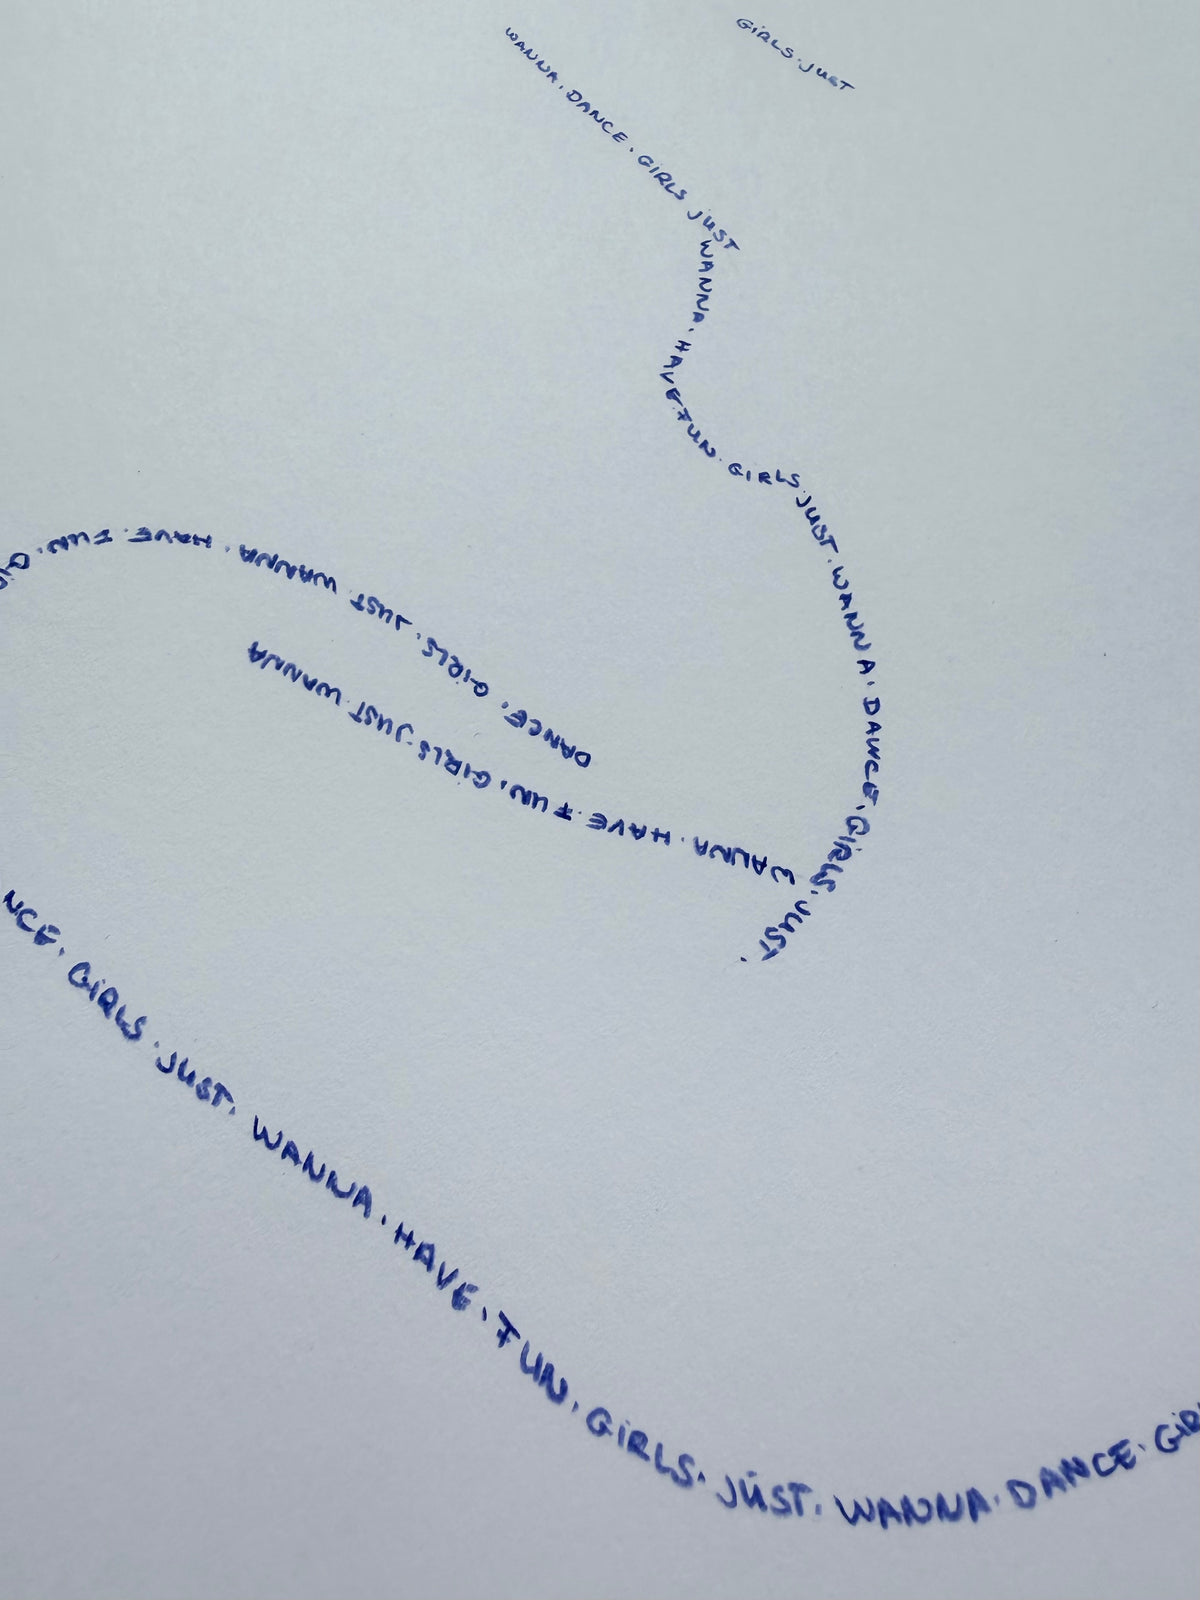 GIRLS. JUST
WANNA. DANCE. GIRLS JUST
WANNA. HAVE. FUN. GIRLS. JUST. WANNA. DANCE. GIRLS. JUST.
WANNA. HAVE. FUN. GIRLS. JUST. WANNA
DANCE. GIRLS. JUST. WANNA. HAVE. FUN.
NCE. GIRLS. JUST. WANNA. HAVE. FUN. GIRLS. JUST. WANNA. DANCE. GIR